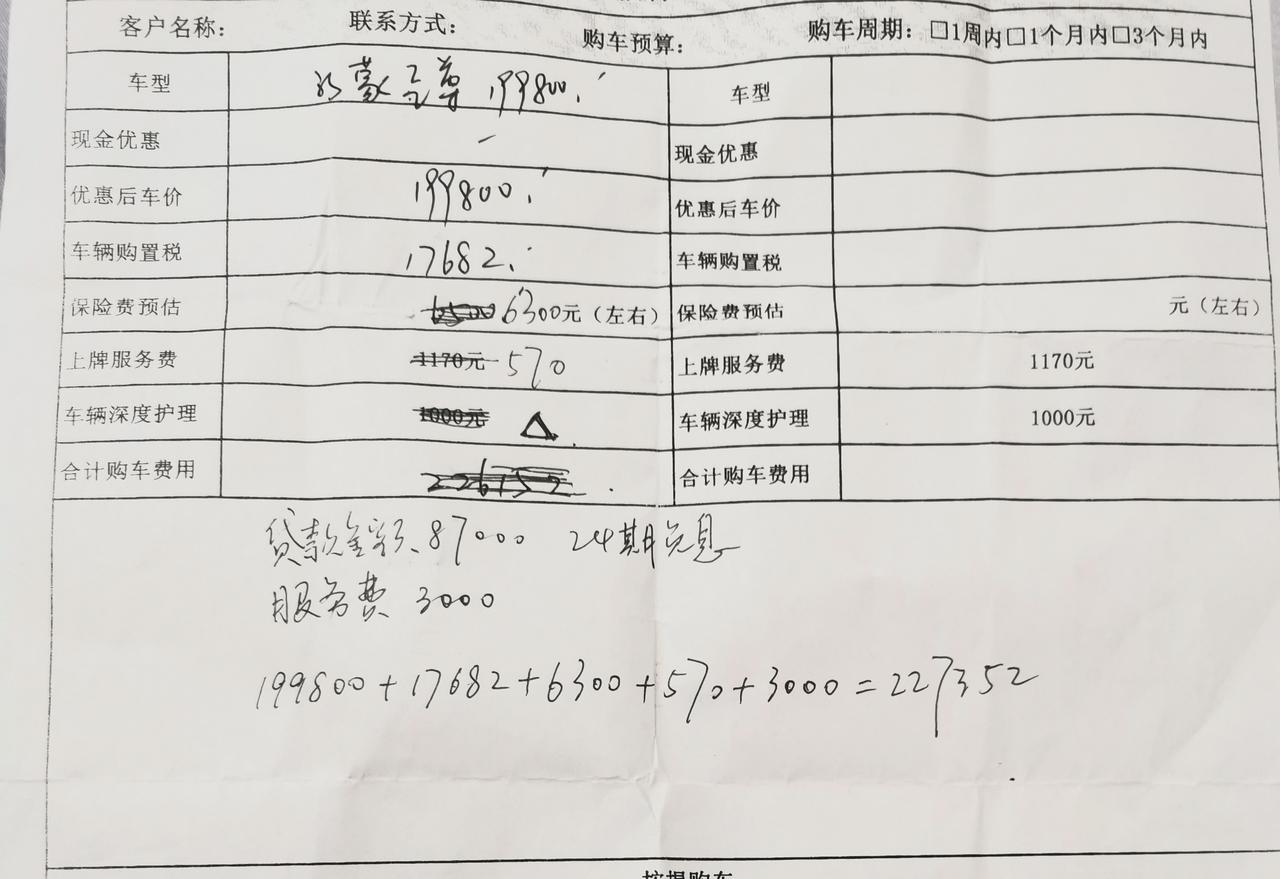 客户名称： 联系方式： 购车预算： 购车周期：□1周内□1个月内□3个月内
车型 蒙至尊 199800. 车型
现金优惠 — 现金优惠
优惠后车价 199800. 优惠后车价
车辆购置税 17682. 车辆购置税
保险费预估 6300元（左右） 保险费预估 元（左右）
上牌服务费 1170元 570 上牌服务费 1170元
车辆深度护理 1000元 车辆深度护理 1000元
合计购车费用 226152 合计购车费用
贷款金额、87000 24期免息
服务费 3000
199800+17682+6300+570+3000=227352
按揭购车